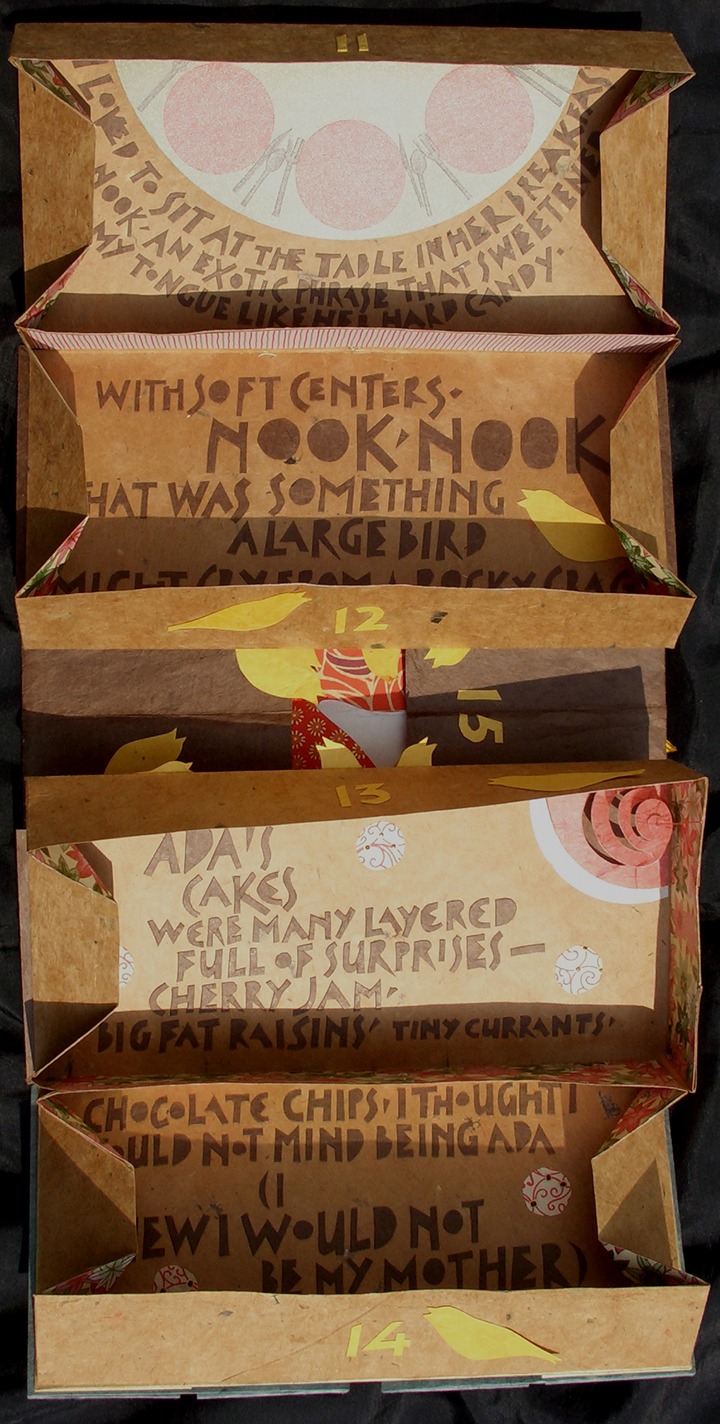 11
I LOVED TO SIT AT THE TABLE IN HER BREAKFAS
NOOK-AN EXOTIC PHRASE THAT SWEETENED
MY TONGUE LIKE HER HARD CANDY.
WITH SOFT CENTERS.
NOOK, NOOK
HAT WAS SOMETHING
A LARGE BIRD
MIGHT CRY FROM A ROCKY CRAG
12
15
13
ADA'S
CAKES
WERE MANY LAYERED
FULL OF SURPRISES—
CHERRY JAM,
BIG FAT RAISINS, TINY CURRANTS,
CHOCOLATE CHIPS, I THOUGHT I
OULD NOT MIND BEING ADA
(I
EW I WOULD NOT
BE MY MOTHER)
14